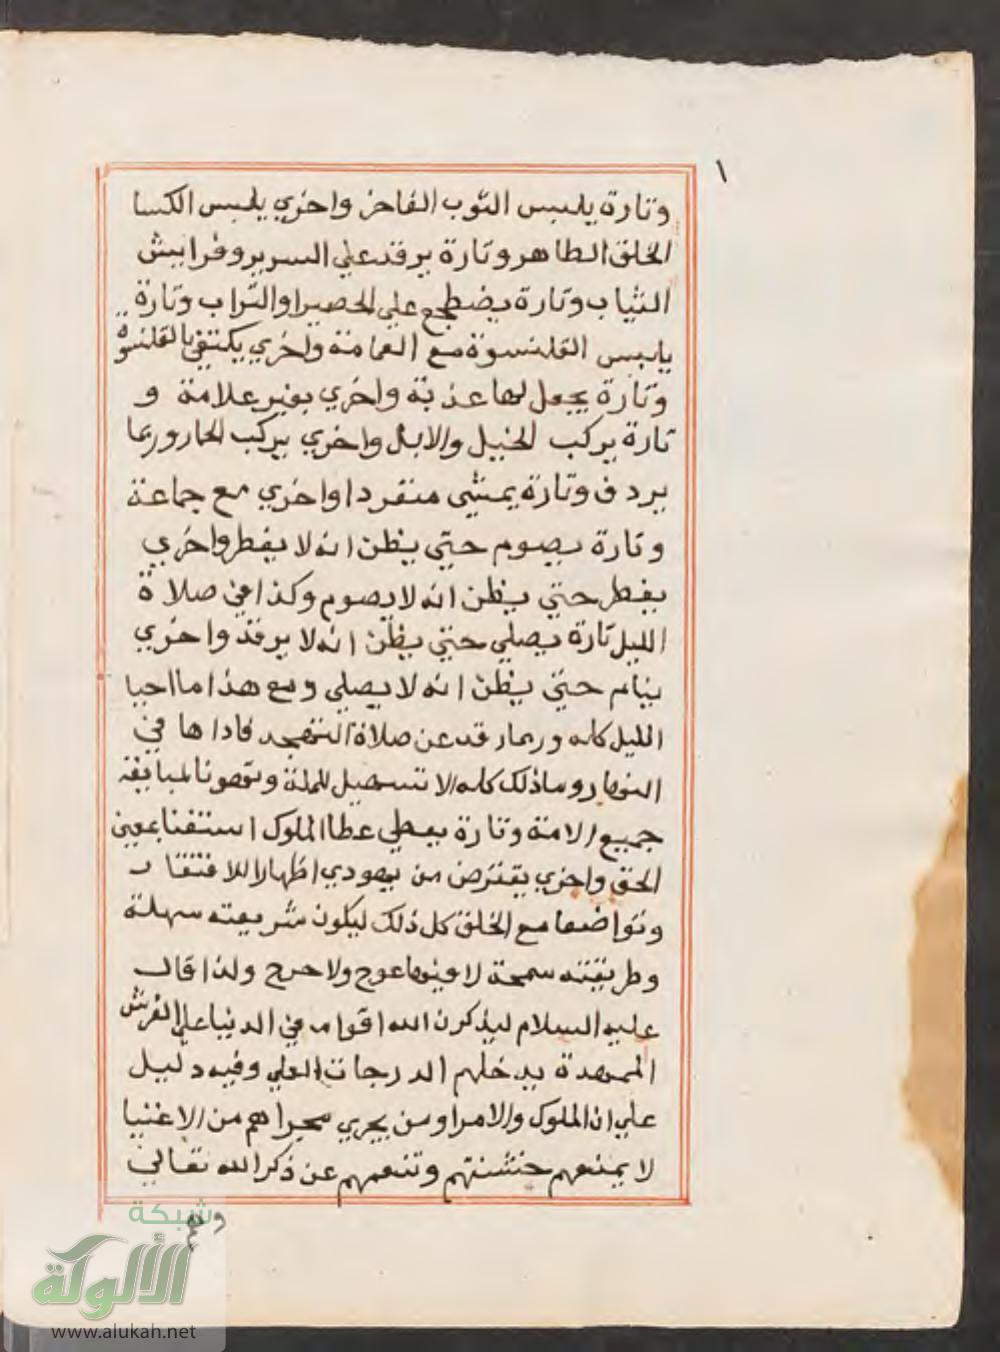 ١
وتارة يلبس الثوب الفاخر واخري يلبس الكسا
الخلق الطاهر وتارة يرقد علي السرير وفراييش
الثياب وتارة يضطجع علي الحصير او التراب وتارة
يلبس القلنسوة مع العمامة واخري يكتفي بالقلنسوة
وتارة يجعل لها عذبة واخري بغير علامة و
تارة يركب الخيل والابل واخري يركب الحمار وربما
يردف وتارة يمشي منفردا واخري مع جماعة
وتارة يصوم حتي يظن انه لا يفطر واخري
يفطر حتي يظن انه لا يصوم وكذا في صلاة
الليل تارة يصلي حتي يظن انه لا يرقد واخري
ينام حتي يظن انه لا يصلي ومع هذا ما احيا
الليل كله وربما رقد عن صلاة التهجد فاداها في
النهار وما ذلك كله الا تسهيل للملة وتهوينا لمبايقة
جميع الامة وتارة يعطي عطا الملوك استغنا بعين
الحق واخري يقترض من يهودي اظهارا للافتقار
وتواضعا مع الخلق كل ذلك ليكون شريعته سهلة
وطريقته سمحة لا فيها عوج ولا حرج ولذا قال
عليه السلام ليذكرن الله اقوام في الدنيا علي الفرش
الممهدة يدخلهم الدرجات العلي وفيه دليل
علي ان الملوك والامرا ومن يجري مجراهم من الاغنيا
لا يمنعهم حشمتهم وتنعمهم عن ذكر الله تعالي
شبكة
الألوكة
www.alukah.net